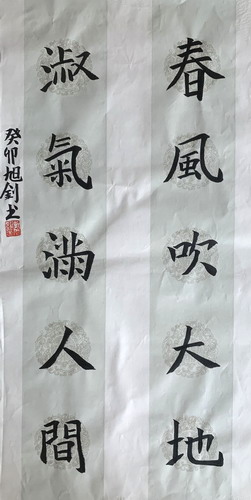 春風吹大地
淑氣滿人間
癸卯旭釗书